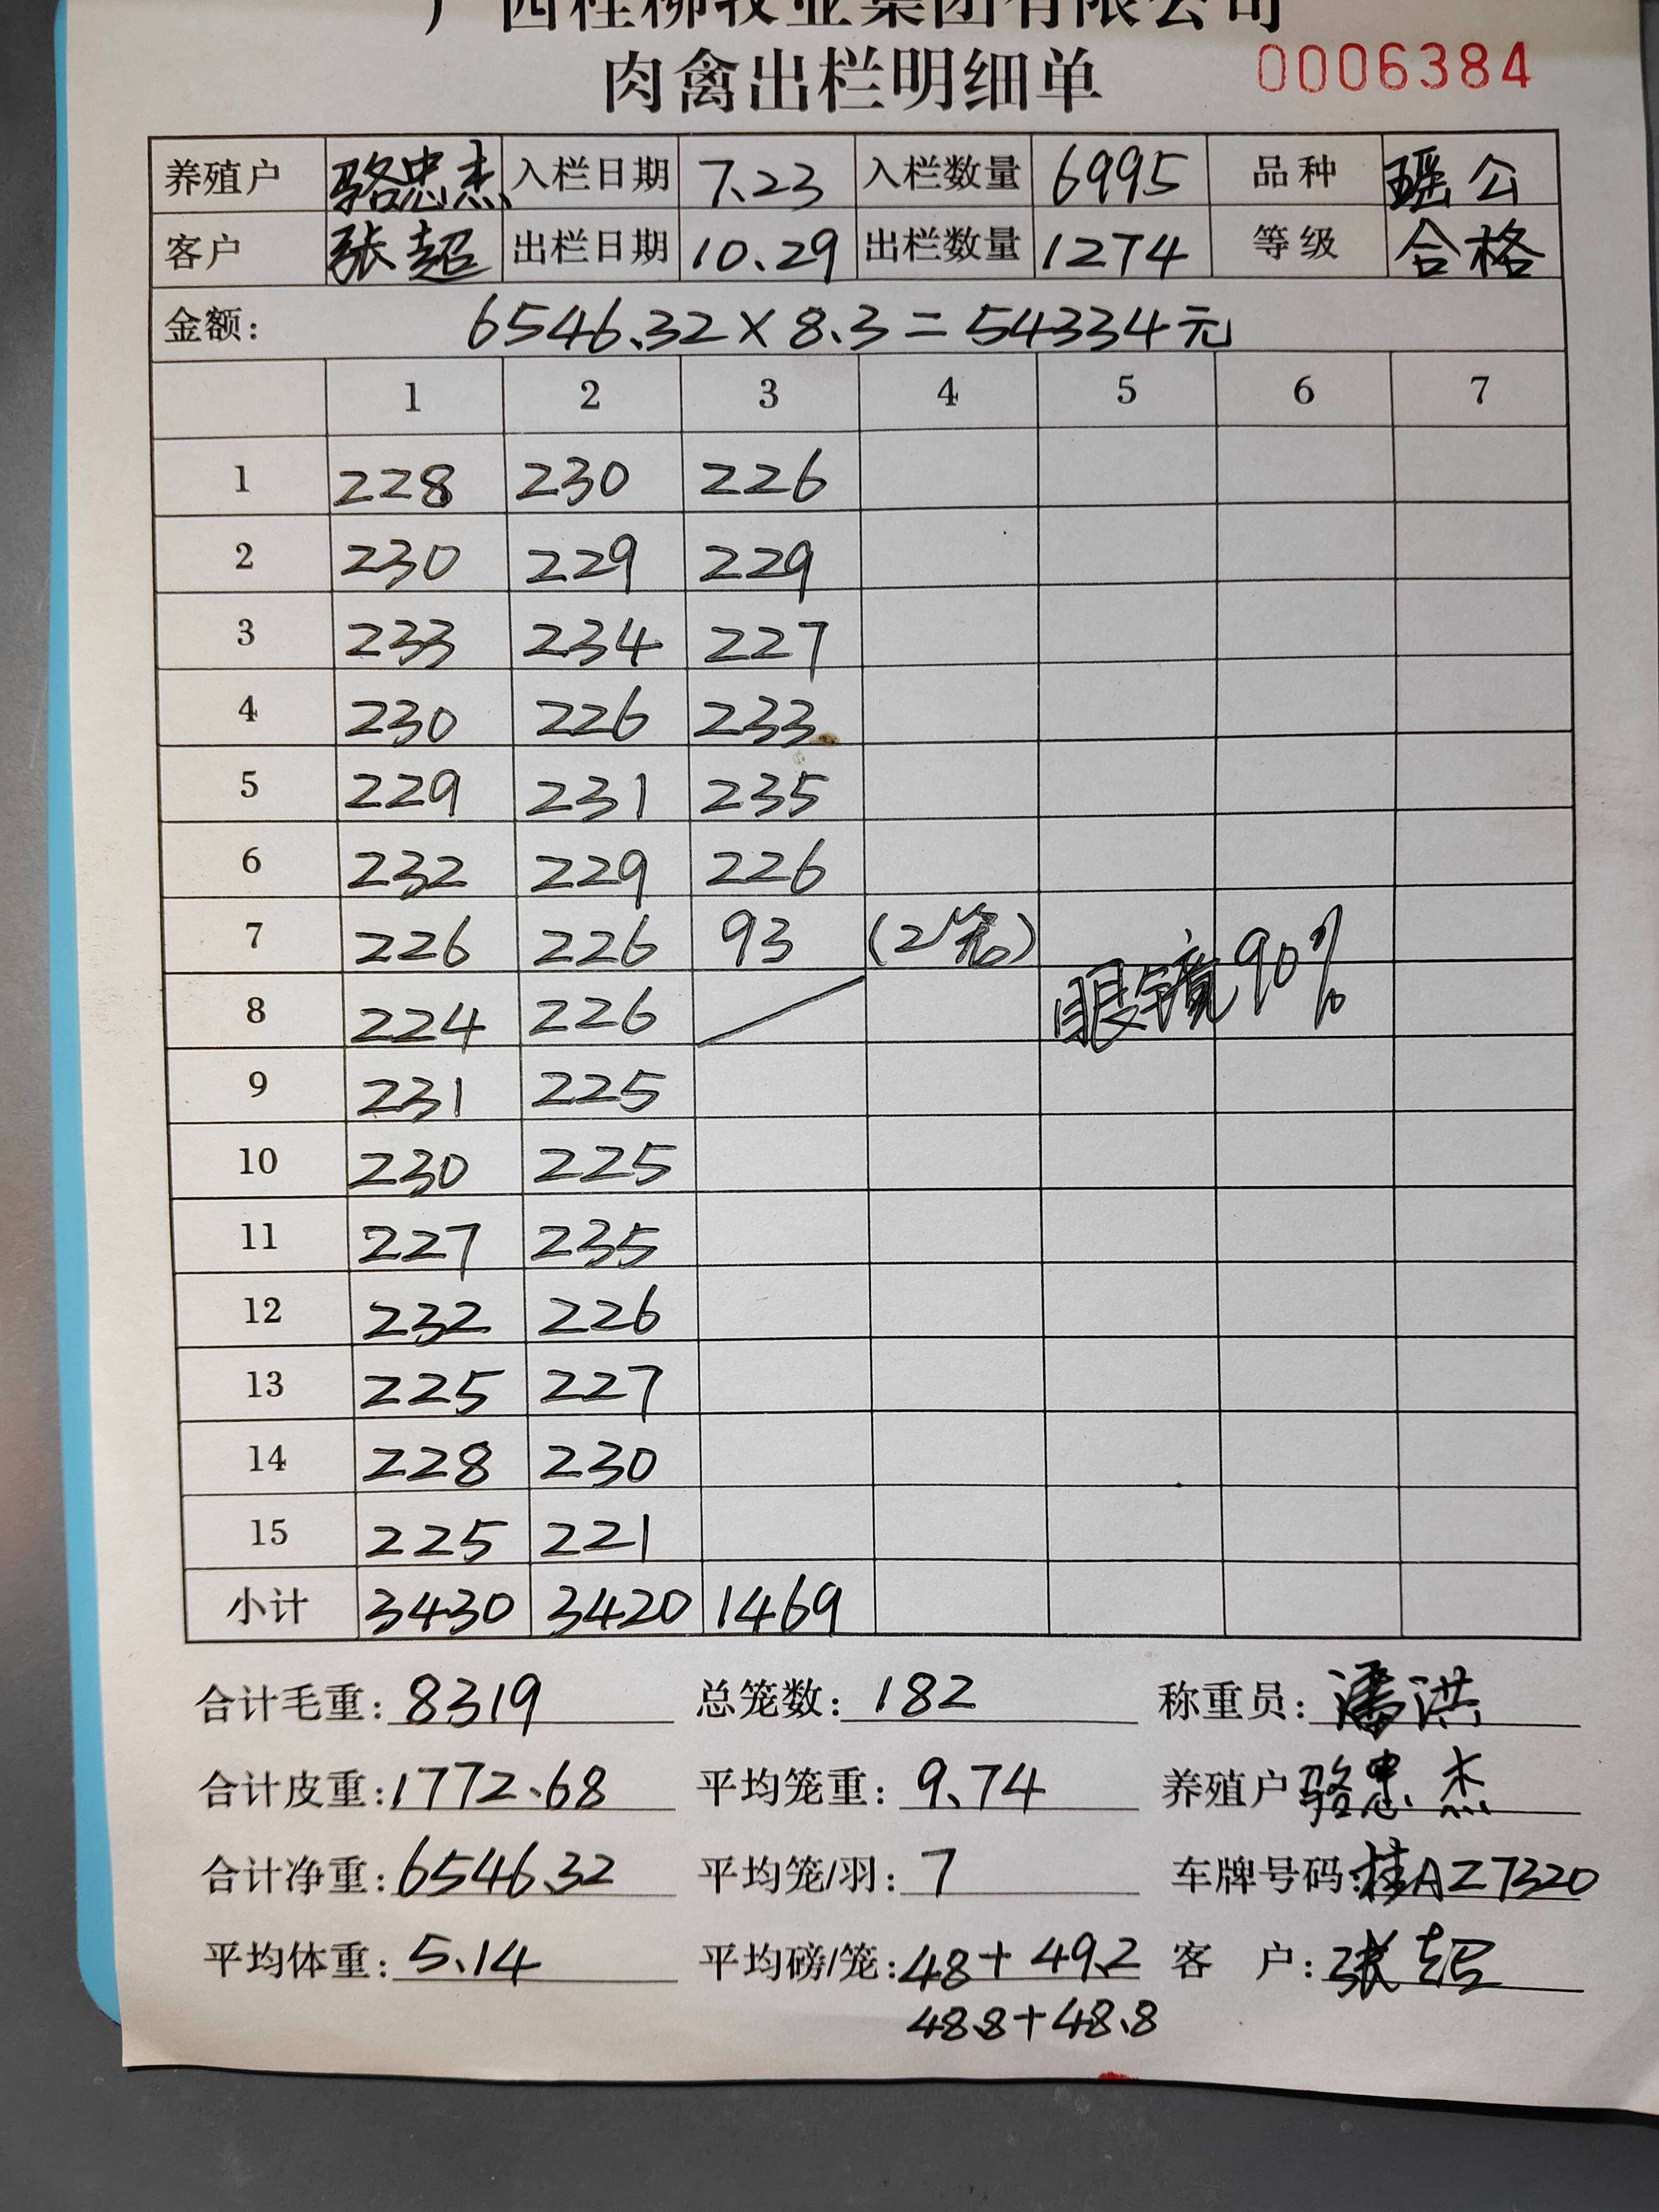 广西桂柳牧业集团有限公司
肉禽出栏明细单 0006384
养殖户 骆忠杰 入栏日期 7.23 入栏数量 6995 品种 瑶公
客户 张超 出栏日期 10.29 出栏数量 1274 等级 合格
金额: 6546.32×8.3=54334元
1 2 3 4 5 6 7
1 228 230 226
2 230 229 229
3 233 234 227
4 230 226 233
5 229 231 235
6 232 229 226
7 226 226 93 (2笼)
8 224 226 眼镜90%
9 231 225
10 230 225
11 227 235
12 232 226
13 225 227
14 228 230
15 225 221
小计 3430 3420 1469
合计毛重: 8319 总笼数: 182 称重员: 潘洪
合计皮重: 1772.68 平均笼重: 9.74 养殖户 骆忠杰
合计净重: 6546.32 平均笼/羽: 7 车牌号码: 桂AZ7320
平均体重: 5.14 平均磅/笼: 48+49.2 客 户: 张超
48.8+48.8